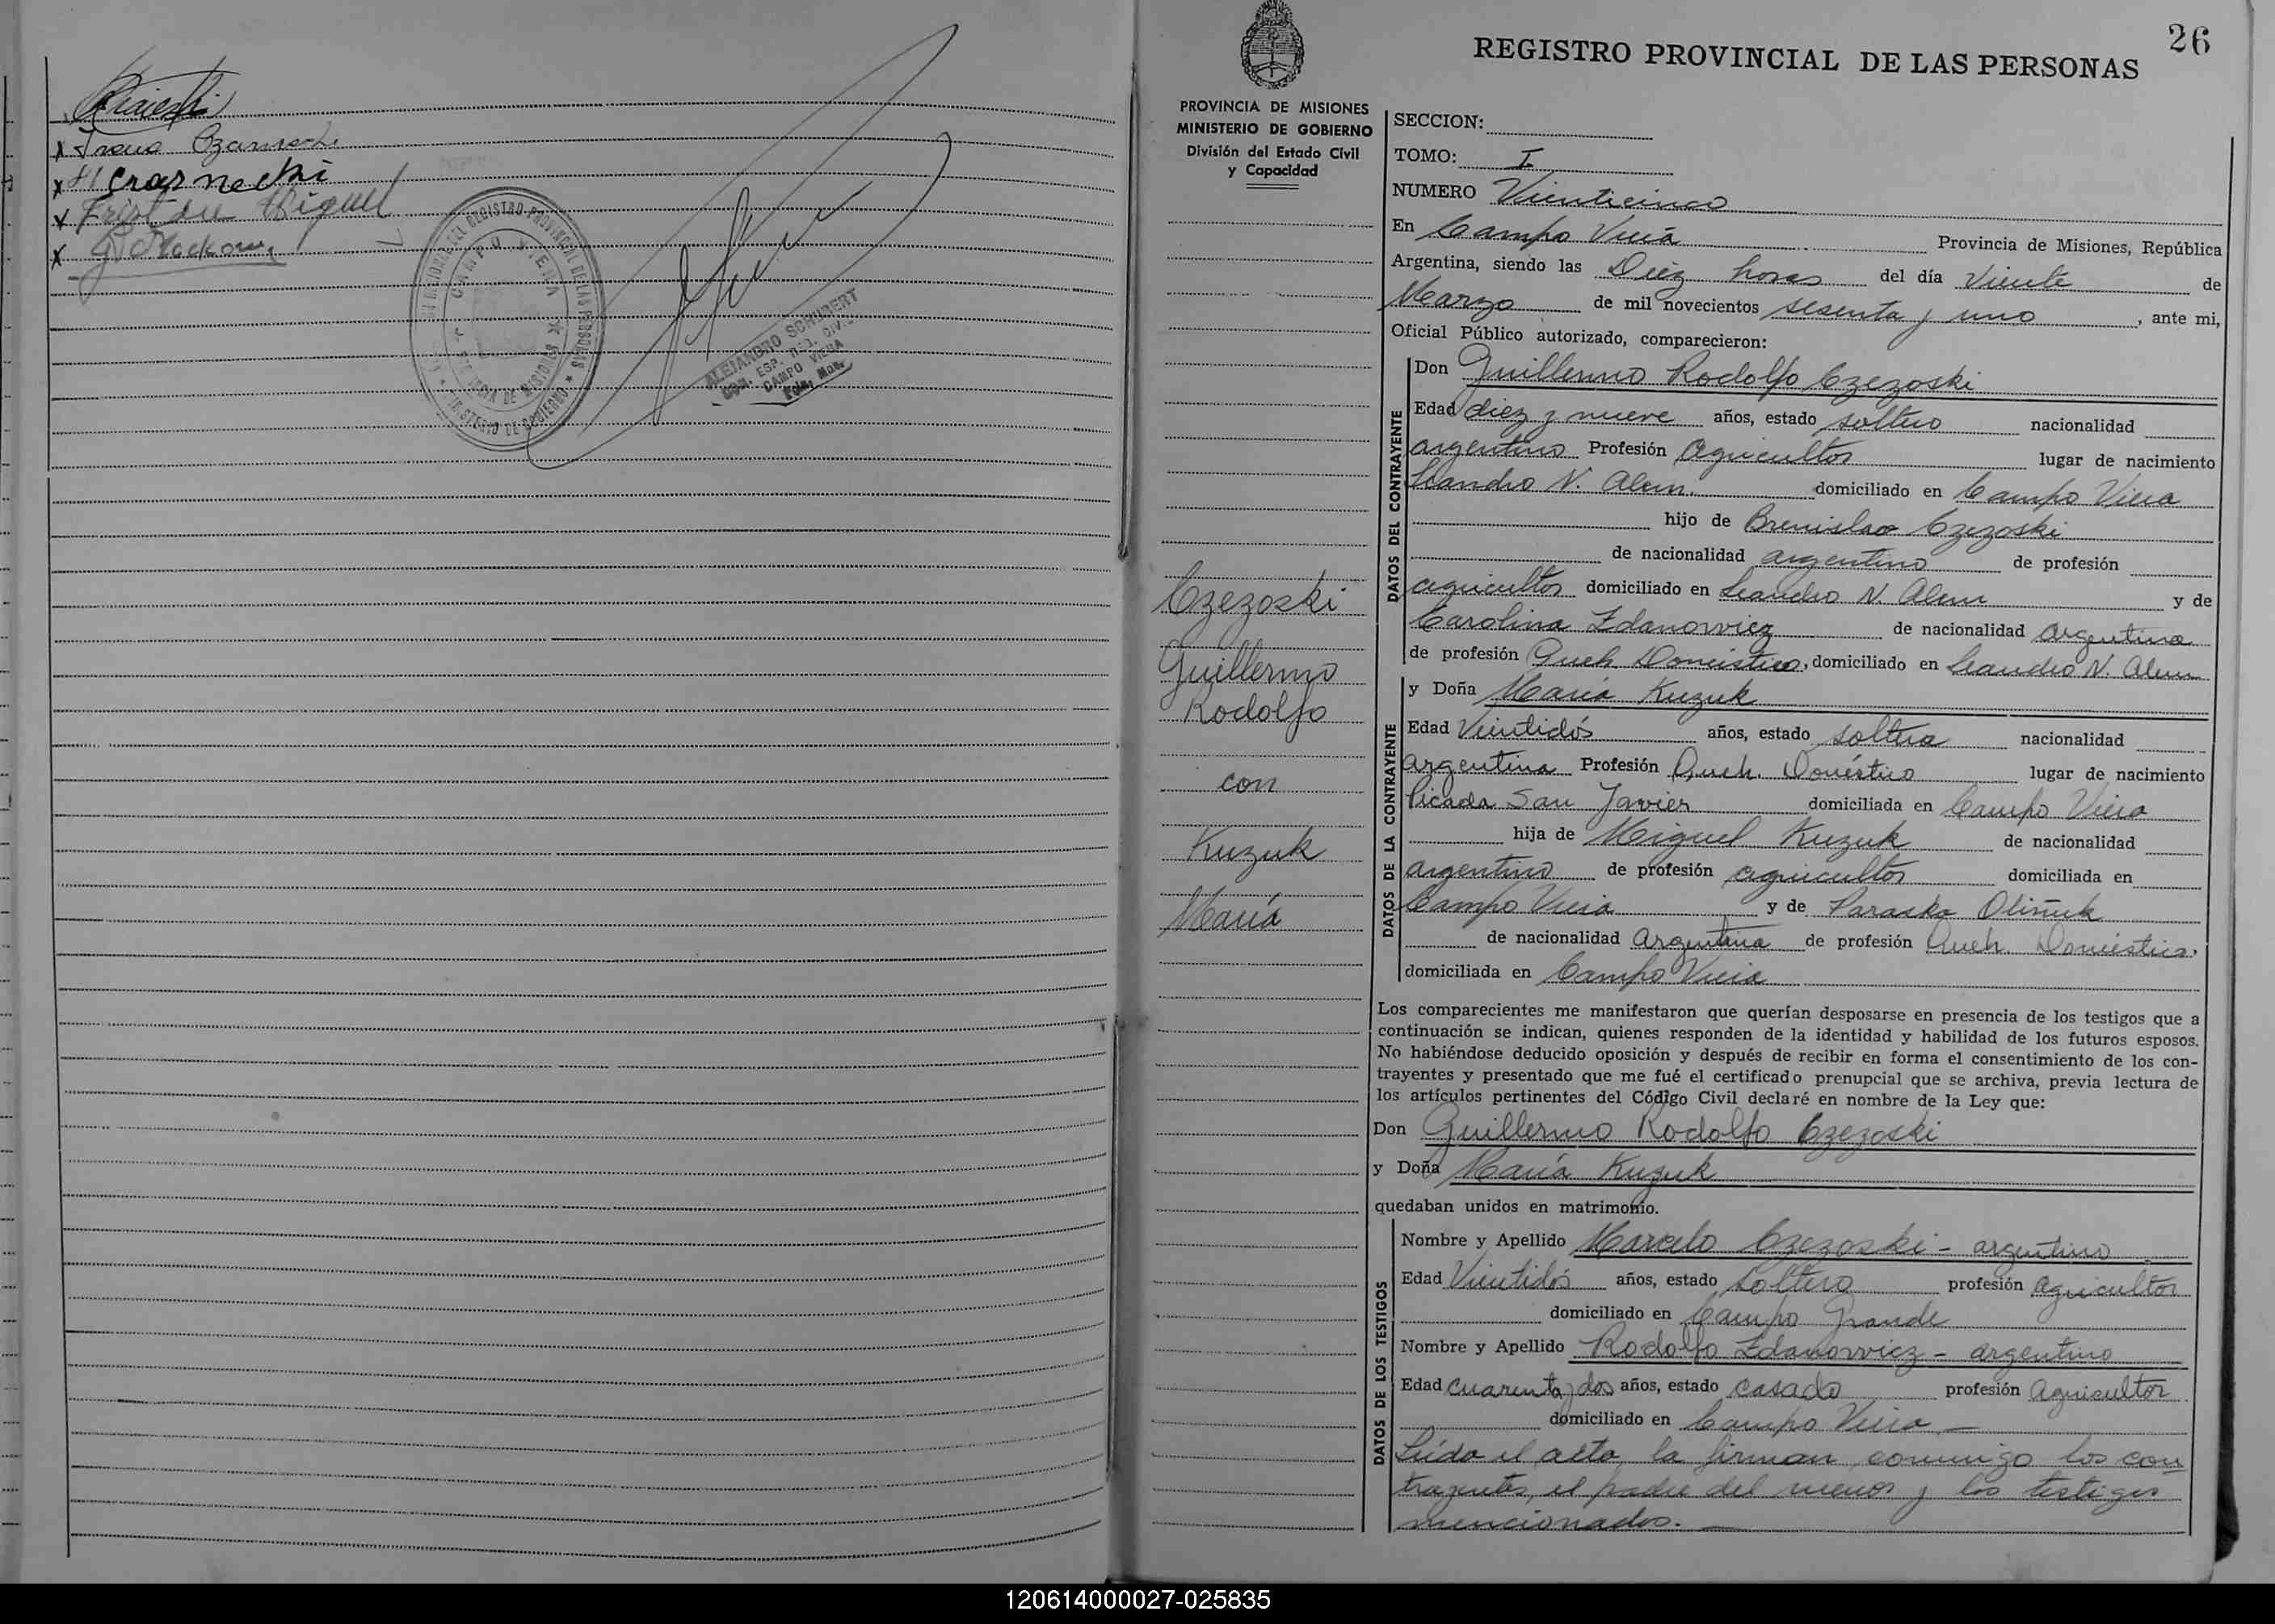 x Irena Czarnecki
x Czarnecki
x Miguel
x
MINISTERIO DE GOBIERNO
CAMPO VIERA
ALEJANDRO SCHUBERT
CAMPO VIERA
26
REGISTRO PROVINCIAL DE LAS PERSONAS
PROVINCIA DE MISIONES
MINISTERIO DE GOBIERNO
División del Estado Civil
y Capacidad
Czezoski
Guillermo
Rodolfo
con
Kuzuk
María
SECCION:
TOMO: I
NUMERO Vienticinco
En Campo Viera Provincia de Misiones, República
Argentina, siendo las Diez horas del día Viente de
Marzo de mil novecientos sesenta y uno, ante mi,
Oficial Público autorizado, comparecieron:
DATOS DEL CONTRAYENTE
Don Guillermo Rodolfo Czezoski
Edad diez y nueve años, estado soltero nacionalidad
argentino Profesión Agricultor lugar de nacimiento
Leandro N. Alem. domiciliado en Campo Viera
hijo de Brenislao Czezoski
de nacionalidad argentino de profesión
agricultor domiciliado en Leandro N. Alem y de
Carolina Zdanowicz de nacionalidad Argentina
de profesión Queh. Doméstico, domiciliado en Leandro N. Alem
DATOS DE LA CONTRAYENTE
y Doña María Kuzuk
Edad Vientidós años, estado soltera nacionalidad
Argentina Profesión Queh. Doméstico lugar de nacimiento
Picada San Javier domiciliada en Campo Viera
hija de Miguel Kuzuk de nacionalidad
argentino de profesión agricultor domiciliada en
Campo Viera y de Paraska Oliñuk
de nacionalidad Argentina de profesión Queh. Doméstica.
domiciliada en Campo Viera
Los comparecientes me manifestaron que querían desposarse en presencia de los testigos que a
continuación se indican, quienes responden de la identidad y habilidad de los futuros esposos.
No habiéndose deducido oposición y después de recibir en forma el consentimiento de los con-
trayentes y presentado que me fué el certificado prenupcial que se archiva, previa lectura de
los artículos pertinentes del Código Civil declaré en nombre de la Ley que:
Don Guillermo Rodolfo Czezoski
y Doña María Kuzuk
quedaban unidos en matrimonio.
DATOS DE LOS TESTIGOS
Nombre y Apellido Marcelo Czezoski - argentino
Edad Vientidós años, estado soltero profesión agricultor
domiciliado en Campo Grande
Nombre y Apellido Rodolfo Zdanowicz - argentino
Edad cuarenta y dos años, estado casado profesión Agricultor
domiciliado en Campo Viera
Leída el acta, la firman conmigo los con
trayentes, el padre del menor y los testigos
mencionados.
120614000027-025835